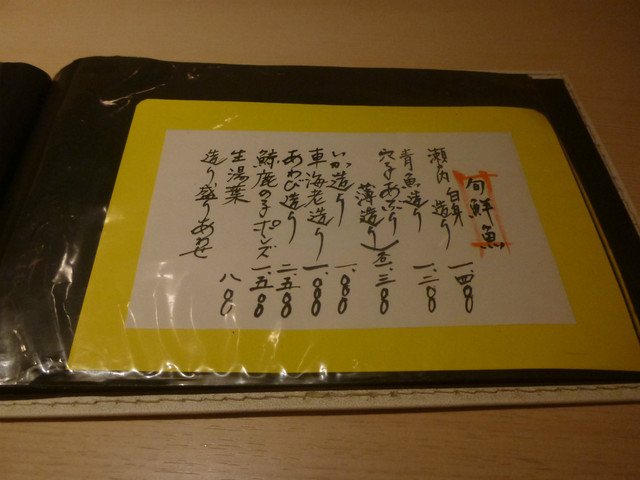 旬鮮魚
瀬内白身造り 一、四〇〇
青魚造り 一、二〇〇
穴子あぶり
薄造り 三〇〇
いか造り 一、〇〇〇
車海老造り 一、〇〇〇
あわび造り 二、五〇〇
鯨鹿の子ポンズ 一、五〇〇
生湯葉 八〇〇
造り盛りあわせ